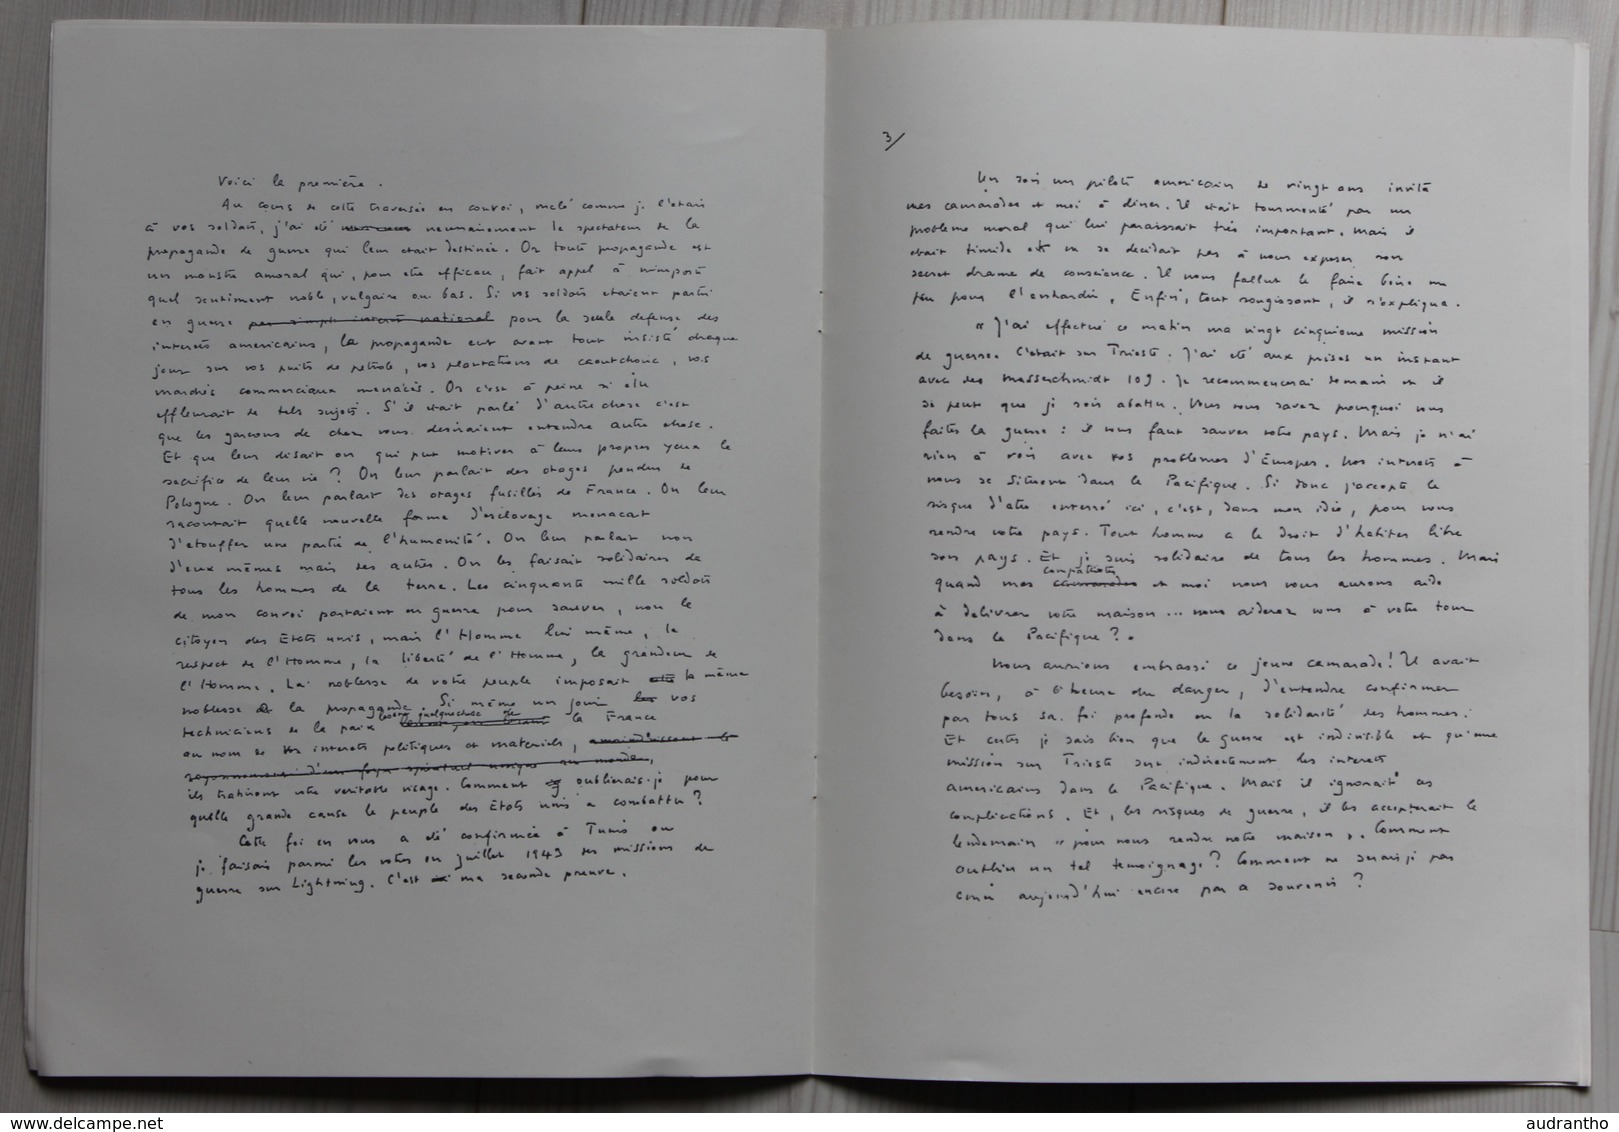 Voici la première.
Au cours de cette traversée en convoi, mêlé comme je l'étais
à vos soldats, j'ai été necessairement le spectateur de la
propagande de guerre qui leur était destinée. Or toute propagande est
un monstre amoral qui, pour etre efficace, fait appel à n'importe
quel sentiment noble, vulgaire ou bas. Si vos soldats etaient partis
en guerre par simple intérêt national pour la seule defense des
interets americains, la propagande eut avant tout insisté chaque
jour sur vos puits de petrole, vos plantations de caoutchouc, vos
marchés commerciaux menacés. Or c'est à peine si elle
effleurait de tels sujets. S'il etait parlé d'autre chose c'est
que les garcons de chez vous desiraient entendre autre chose.
Et que leur disait on qui put motiver à leurs propres yeux le
sacrifice de leur vie ? On leur parlait des otages pendus de
Pologne. On leur parlait des otages fusillés de France. On leur
racontait quelle nouvelle forme d'esclavage menacait
d'etouffer une partie de l'humanité. On leur parlait non
d'eux mêmes mais des autres. On les faisait solidaires de
tous les hommes de la terre. Les cinquante mille soldats
de mon convoi partaient en guerre pour sauver, non le
citoyen des Etats unis, mais l'Homme lui même, le
respect de l'Homme, la liberté de l'Homme, la grandeur de
l'Homme. La noblesse de votre peuple imposait la même
noblesse à la propagande. Si même un jour les vos
techniciens de la paix lesent quelquechose de la France
au nom de vos interets politiques et materiels,
rayonnement d'un foyer spirituel unique au monde,
ils trahiront votre veritable visage. Comment oublierais-je pour
quelle grande cause le peuple des Etats unis a combattu ?
Cette foi en vous a été confirmée à Tunis ou
je faisais parmi les votres en juillet 1943 des missions de
guerre sur Lightning. C'est ma seconde preuve.
3/
Un soir un pilote americain de vingt ans invita
mes camarades et moi à diner. Il etait tourmenté par un
probleme moral qui lui paraissait très important. Mais il
etait timide et ne se decidait pas à nous exposer son
secret drame de conscience. Il nous fallut le faire boire un
peu pour l'enhardir. Enfin, tout rougissant, il s'expliqua.
« J'ai effectué ce matin ma vingt cinquieme mission
de guerre. C'etait sur Trieste. J'ai été aux prises un instant
avec des Messerchmidt 109. Je recommencerai demain et il
se peut que je sois abattu. Vous vous savez pourquoi vous
faites la guerre : il vous faut sauver votre pays. Mais je n'ai
rien à voir avec vos problemes d'Europe. Nos interets à
nous se situent dans le Pacifique. Si donc j'accepte le
risque d'etre enterré ici, c'est, dans mon idée, pour vous
rendre votre pays. Tout homme a le droit d'habiter libre
son pays. Et je suis solidaire de tous les hommes. Mais
compatriotes
quand mes camarades et moi nous vous aurons aidé
à delivrer votre maison... nous aiderez vous à votre tour
dans le Pacifique ? ».
Nous aurions embrassé ce jeune camarade ! Il avait
besoin, à l'heure du danger, d'entendre confirmer
par tous sa foi profonde en la solidarité des hommes.
Et certes je sais bien que la guerre est indivisible et qu'une
mission sur Trieste sert indirectement les interets
americains dans le Pacifique. Mais il ignorait ces
complications. Et, les risques de guerre, il les accepterait le
lendemain « pour nous rendre notre maison ». Comment
oublier un tel temoignage ? Comment ne serais-je pas
emu aujourd'hui encore par ce souvenir ?
audrantho